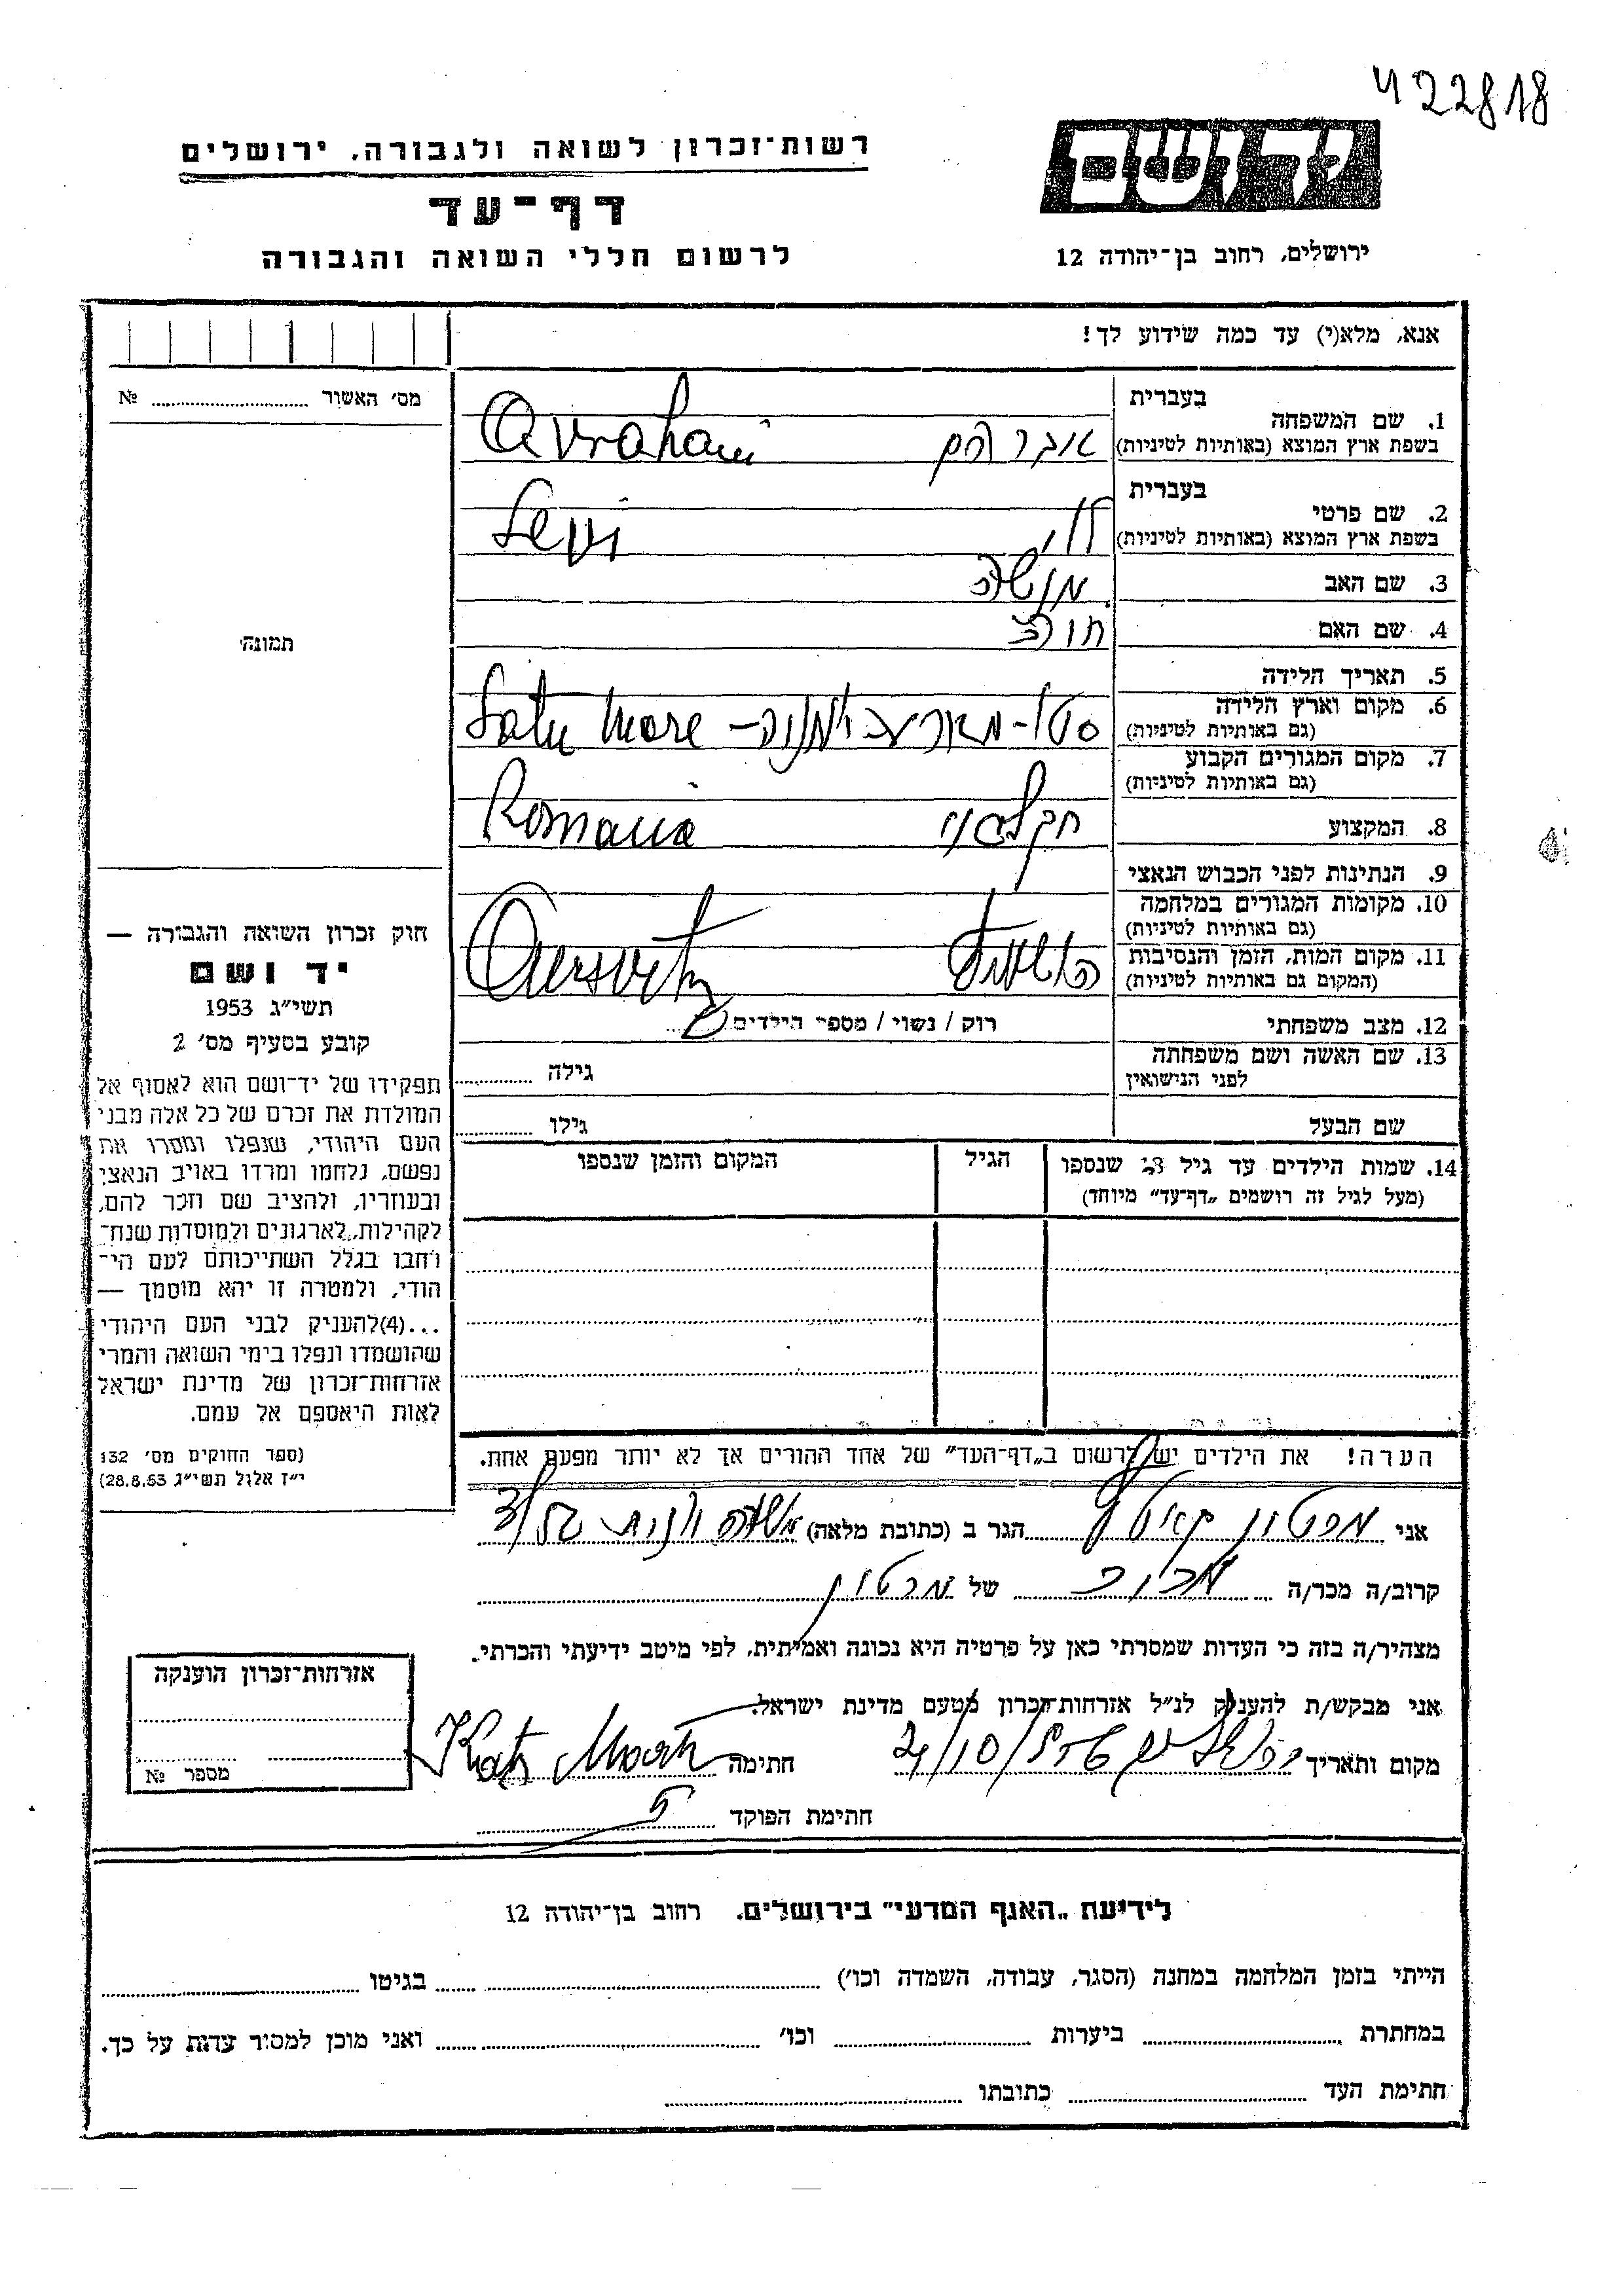 422818
יד ושם
רשות־זכרון לשואה ולגבורה, ירושלים
דף־עד
לרשום חללי השואה והגבורה
ירושלים, רחוב בן־יהודה 12
אנא, מלא(י) עד כמה שידוע לך!
מס׳ האשור № 
תמונה
חוק זכרון השואה והגבורה —
יד ושם
תשי״ג 1953
קובע בסעיף מס׳ 2
תפקידו של יד־ושם הוא לאסוף אל
המולדת את זכרם של כל אלה מבני
העם היהודי, שנפלו ומסרו את
נפשם, נלחמו ומרדו באויב הנאצי
ובעוזריו, ולהציב שם וזכר להם,
לקהילות, לארגונים ולמוסדות שנח־
רבו בגלל השתייכותם לעם הי־
הודי, ולמטרה זו יהא מוסמך —
...(4) להעניק לבני העם היהודי
שהושמדו ונפלו בימי השואה והמרי
אזרחות־זכרון של מדינת ישראל
לאות היאספם אל עמם.
(ספר החוקים מס׳ 132
י״ז אלול תשי״ג 28.8.53)
בעברית
1. שם המשפחה
בשפת ארץ המוצא (באותיות לטיניות) אברהם Avraham
בעברית
2. שם פרטי
בשפת ארץ המוצא (באותיות לטיניות) לוי Levi
3. שם האב מנשה
4. שם האם
5. תאריך הלידה
6. מקום וארץ הלידה
(גם באותיות לטיניות) סטו-מארע רומניה – Satu Mare
7. מקום המגורים הקבוע
(גם באותיות לטיניות)
8. המקצוע חקלאי Romania
9. הנתינות לפני הכבוש הנאצי
10. מקומות המגורים במלחמה
(גם באותיות לטיניות)
11. מקום המות, הזמן והנסיבות
(המקום גם באותיות לטיניות)
12. מצב משפחתי רוק / נשוי / מספר הילדים
13. שם האשה ושם משפחתה
לפני הנישואין גילה
שם הבעל גילו
14. שמות הילדים עד גיל 18 שנספו הגיל המקום והזמן שנספו
(מעל לגיל זה רושמים „דף־עד״ מיוחד)
הערה! את הילדים יש לרשום ב„דף־העד״ של אחד ההורים אך לא יותר מפעם אחת.
אני הגר ב (כתובת מלאה)
קרוב/ה מכר/ה של
מצהיר/ה בזה כי העדות שמסרתי כאן על פרטיה היא נכונה ואמיתית, לפי מיטב ידיעתי והכרתי.
אני מבקש/ת להעניק לנ״ל אזרחות־זכרון מטעם מדינת ישראל.
מקום ותאריך חתימה
חתימת הפוקד
אזרחות־זכרון הוענקה
מספר №
לידיעת „האגף המדעי״ בירושלים, רחוב בן־יהודה 12
הייתי בזמן המלחמה במחנה (הסגר, עבודה, השמדה וכו׳) בגיטו
במחתרת ביערות וכו׳ ואני מוכן למסור עדות על כך.
חתימת העד כתובתו